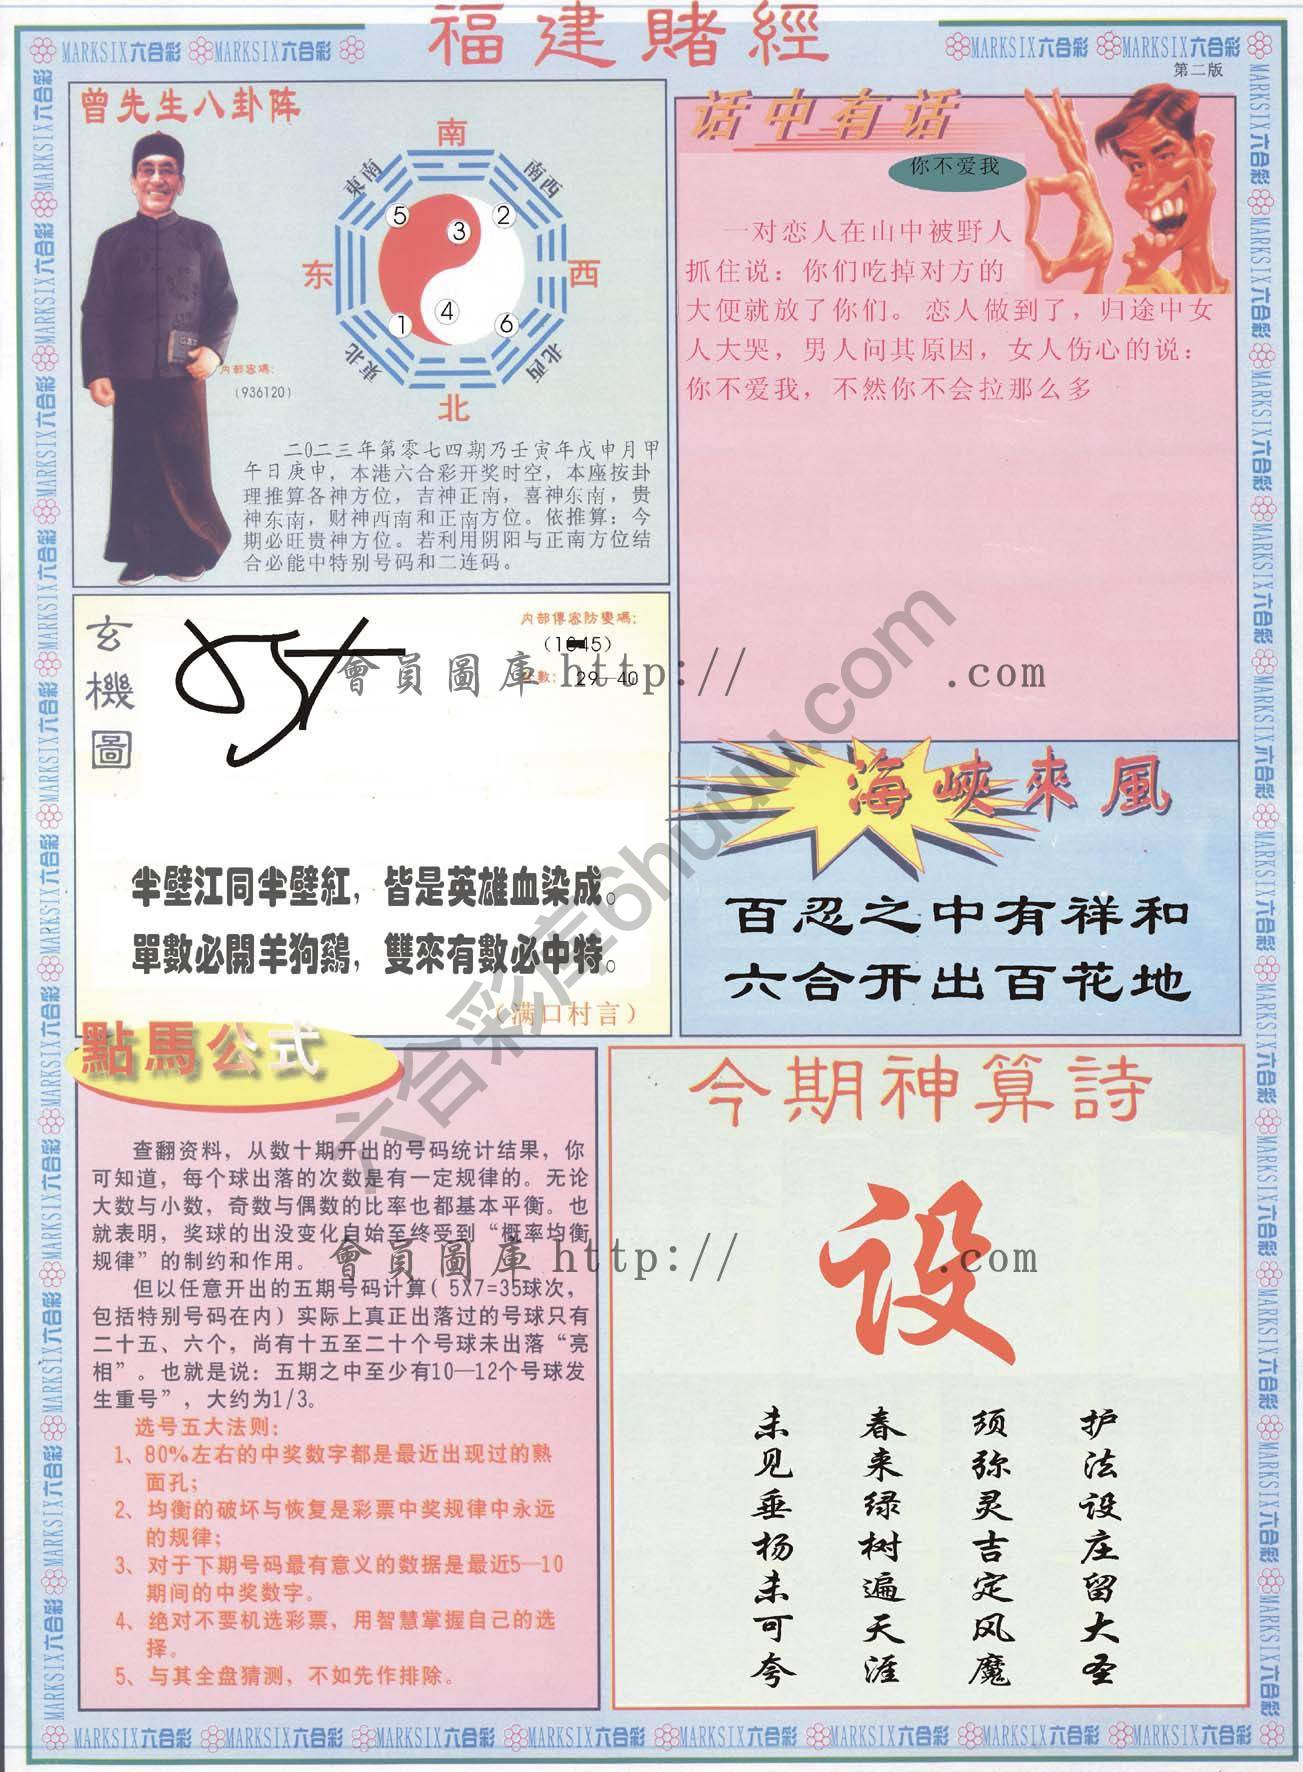 福建賭經
MARKSIX六合彩 MARKSIX六合彩
MARKSIX六合彩 MARKSIX六合彩
第二版
曾先生八卦阵
南
東南
南西
5
3
2
东
西
4
1
6
東北
北西
北
内部密碼:
(936120)
二0二三年第零七四期乃壬寅年戊申月甲
午日庚申，本港六合彩开奖时空，本座按卦
理推算各神方位，吉神正南，喜神东南，贵
神东南，财神西南和正南方位。依推算：今
期必旺贵神方位。若利用阴阳与正南方位结
合必能中特别号码和二连码。
话中有话
你不爱我
一对恋人在山中被野人
抓住说：你们吃掉对方的
大便就放了你们。恋人做到了，归途中女
人大哭，男人问其原因，女人伤心的说：
你不爱我，不然你不会拉那么多
玄機圖
内部傳密防變碼:
29—40
會員圖庫 http:// .com
半壁江同半壁紅，皆是英雄血染成。
單數必開羊狗鷄，雙來有數必中特。
（满口村言）
海峽來風
百忍之中有祥和
六合开出百花地
六合彩库6huuu.com
點馬公式
查翻资料，从数十期开出的号码统计结果，你
可知道，每个球出落的次数是有一定规律的。无论
大数与小数，奇数与偶数的比率也都基本平衡。也
就表明，奖球的出没变化自始至终受到“概率均衡
规律”的制约和作用。
但以任意开出的五期号码计算( 5X7=35球次，
包括特别号码在内）实际上真正出落过的号球只有
二十五、六个，尚有十五至二十个号球未出落“亮
相”。也就是说：五期之中至少有10—12个号球发
生重号”，大约为1/3。
选号五大法则：
1、80%左右的中奖数字都是最近出现过的熟
面孔；
2、均衡的破坏与恢复是彩票中奖规律中永远
的规律；
3、对于下期号码最有意义的数据是最近5—10
期间的中奖数字。
4、绝对不要机选彩票，用智慧掌握自己的选
择。
5、与其全盘猜测，不如先作排除。
今期神算詩
會員圖庫 http:// .com
设
护法设庄留大圣
须弥灵吉定风魔
春来绿树遍天涯
未见垂杨未可夸
MARKSIX六合彩 MARKSIX六合彩 MARKSIX六合彩 MARKSIX六合彩 MARKSIX六合彩 MARKSIX六合彩 MARKSIX六合彩 MARKSIX六合彩